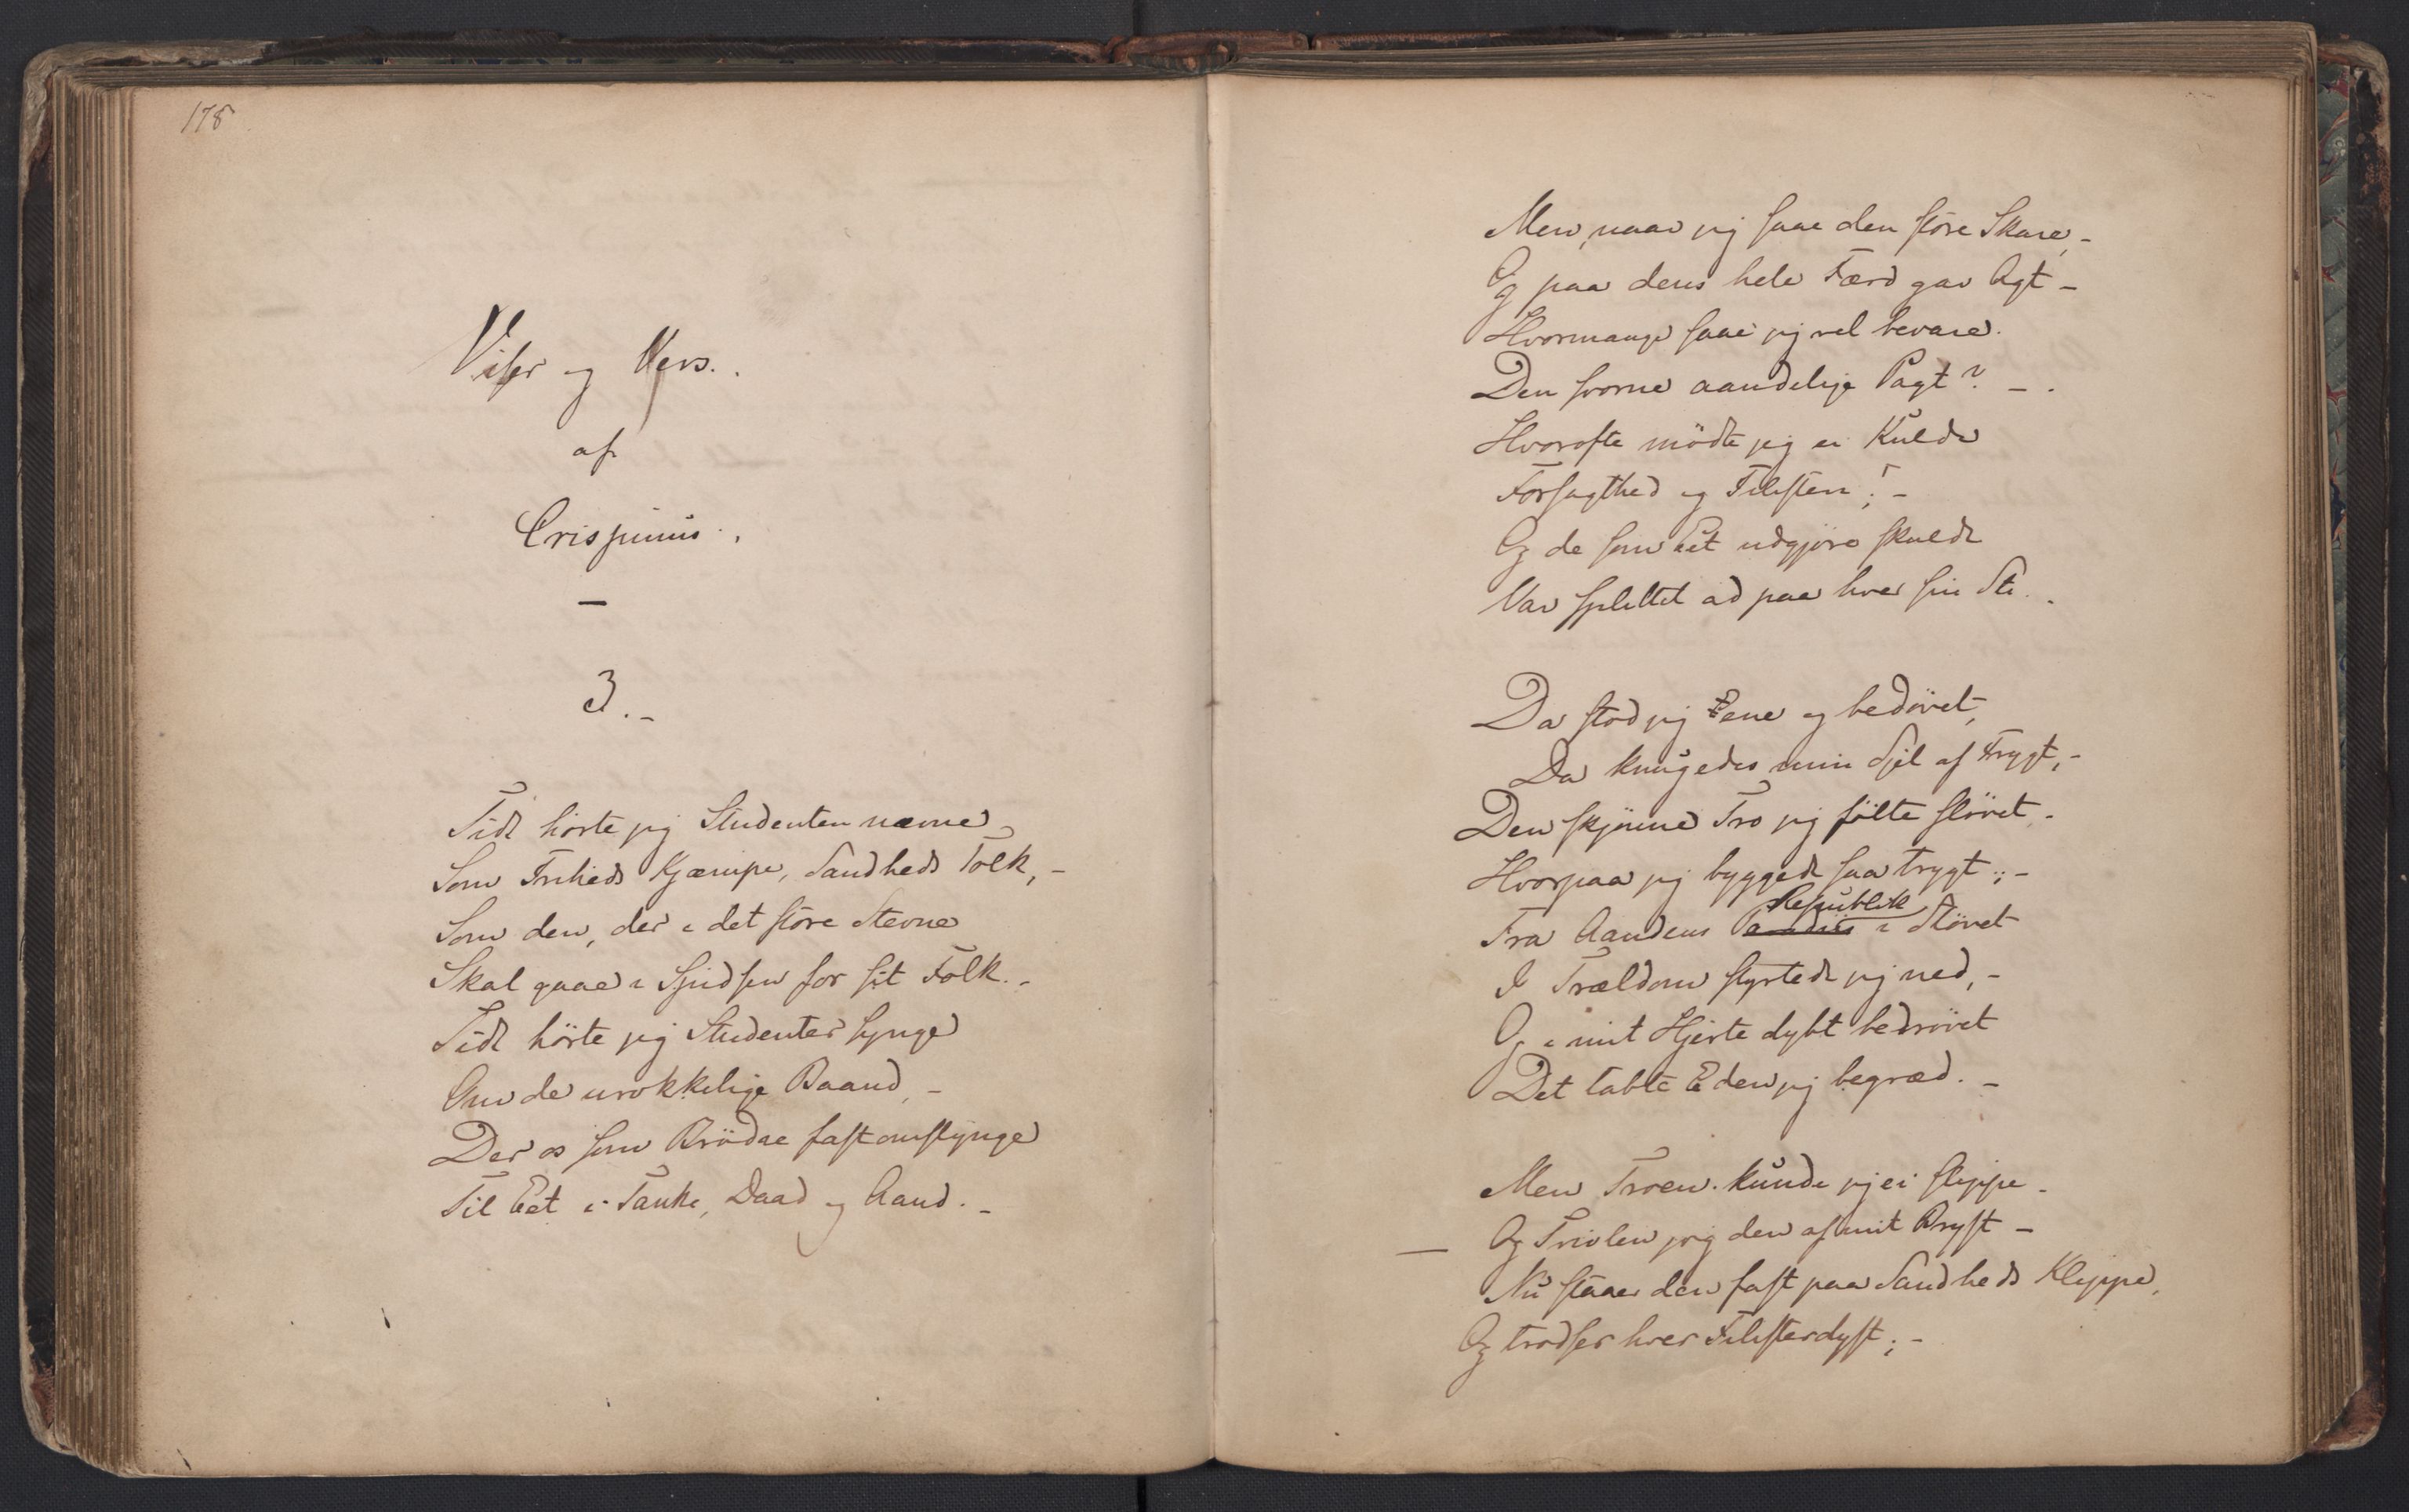 178
Viser og Vers.
af
Crispinus.
3.-
Tidt hörte jeg Studenten nævne
Som Friheds Kjæmpe, Sandheds Tolk, -
Som den, der i det störe Stevne
Skal gaae i Spidsen for sit Folk. -
Tidt hörte jeg Studenter synge
Om de urokkelige Baand, -
Der os som Brödre fast omslynge
Til Eet i Tanke, Daad og Aand. -
Men, naar jeg saae den store Skare, -
Og paa dens hele Færd gav Agt -
Hvormange saae jeg vel bevare
Den svorne aandelige Pagt? -
Hvorofte mödte jeg ei Kulde
Forsagthed og Filisteri! -
Og de som Eet udgjöre skulde
Var splittet ad paa hver sin Sti.
Da stod jeg Ene og bedövet,
Da knugedes min Sjel af Frygt, -
Den skjönne Tro jeg fölte slövet -
Hvorpaa jeg bygged saa trygt; -
Republik
Fra Aandens Paradiis i Stövet
I Trældom styrtede jeg ned, -
Og i mit Hjerte dybt bedrövet
Det tabte Eden jeg begræd. -
Men Troen kunde jeg ei slippe -
Og Tvivlen jog den af mit Bryst -
Nu staaer den fast paa Sandheds Klippe,
Og trodser hver Filisterdyst; -